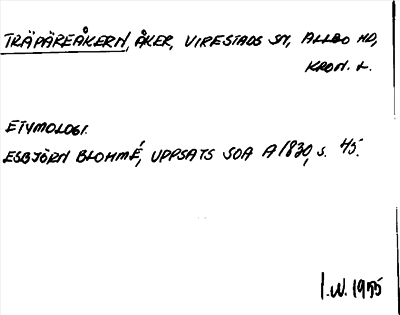 TRÄPÄREÅKERN, ÅKER, VIRESTADS SN, ALLBO HD,
KRON. L.
ETYMOLOGI.
ESBJÖRN BLOHMÉ, UPPSATS SOA A 1830, S. 45.
I.W. 1955